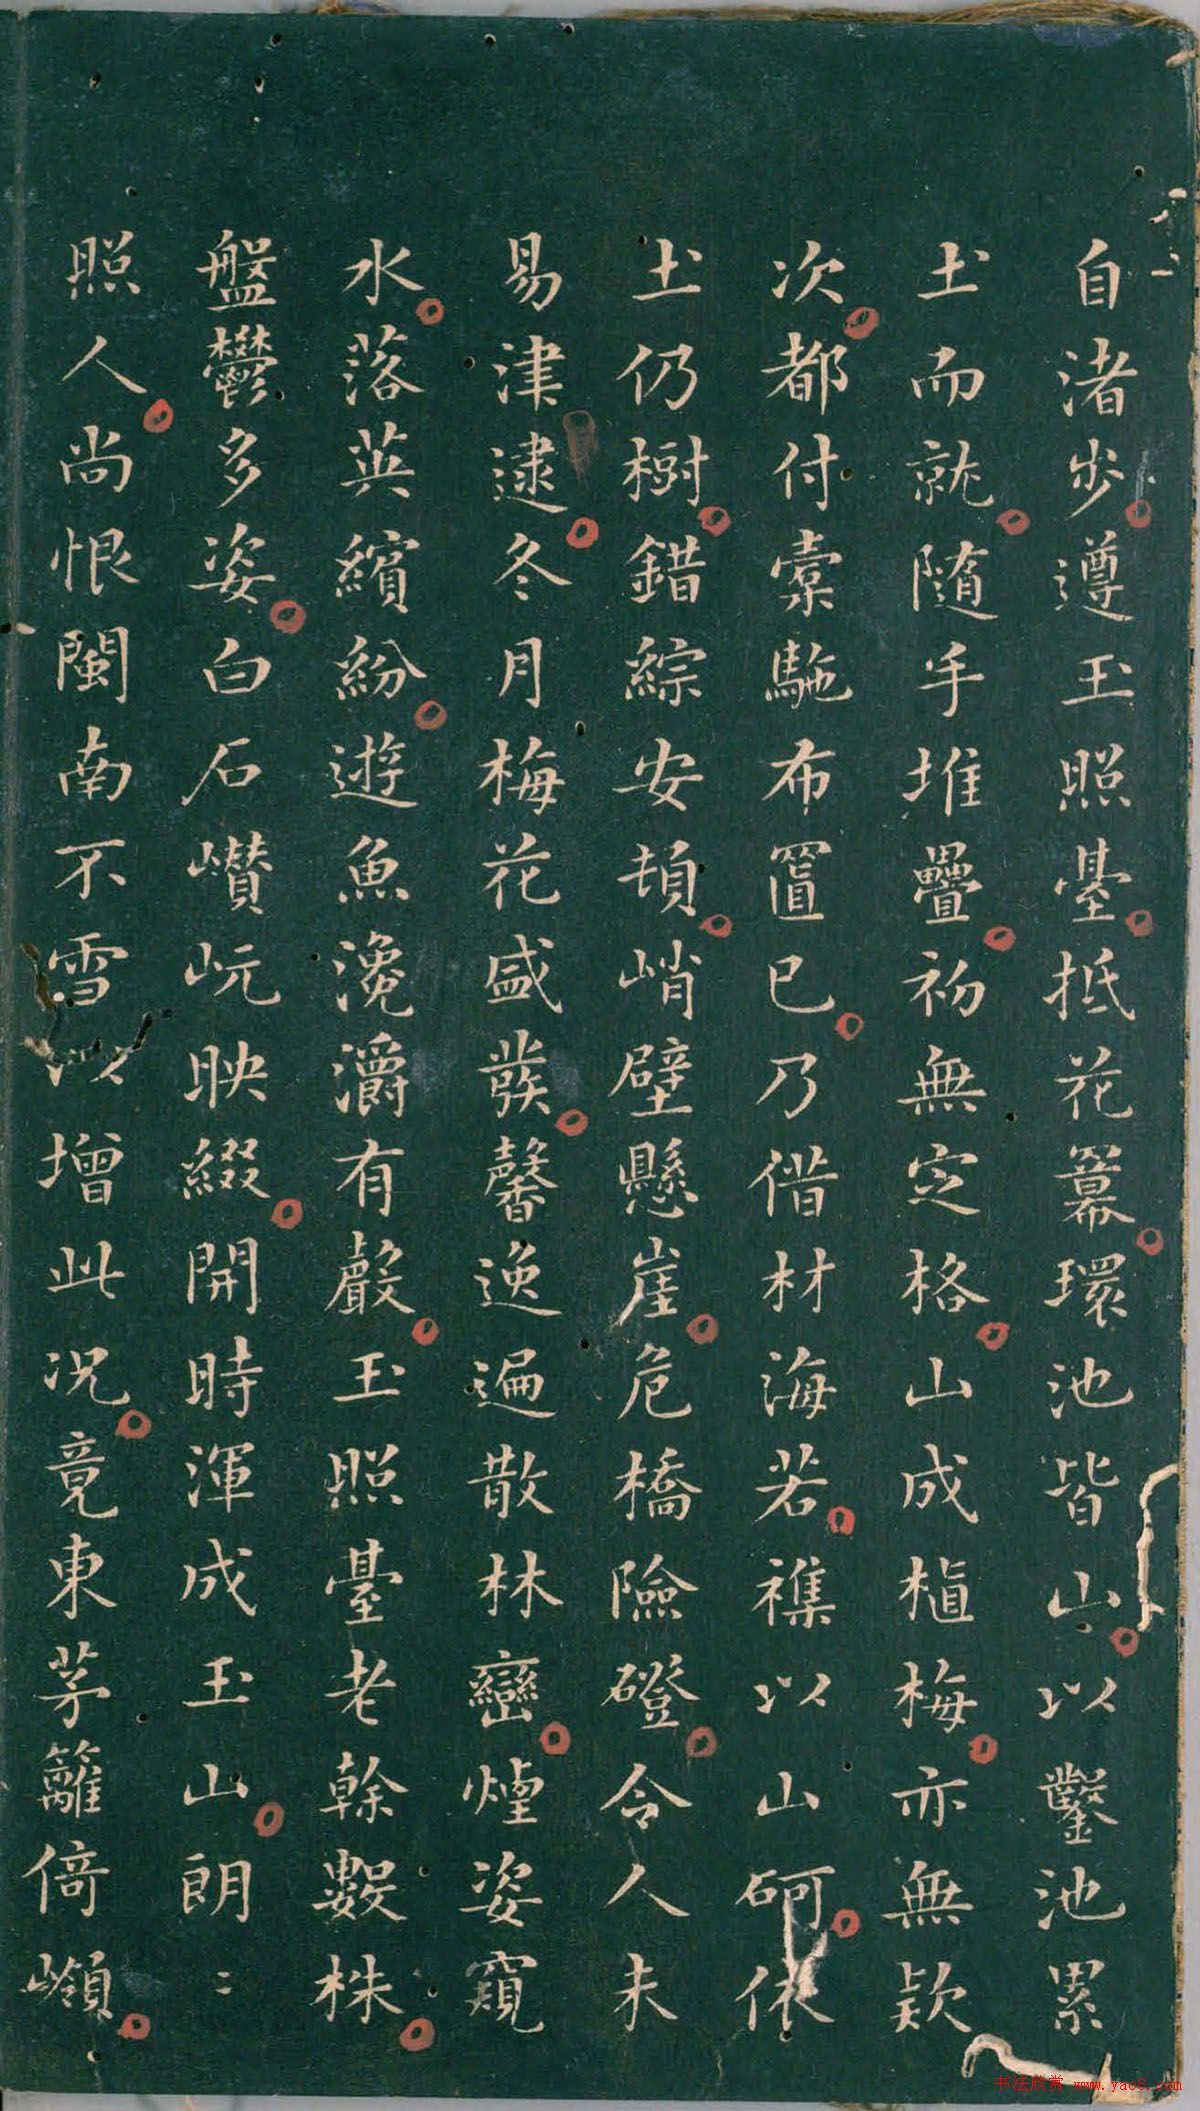 自渚步遵玉照臺抵花幕環池皆山以鑿池累
土而就隨手堆疊初無定格山成植梅亦無欵
次都付橐駞布置已乃借材海若襍以山砢依
土仍樹錯綜安頓峭壁懸崖危橋險磴令人未
易津逮冬月梅花盛發馨逸遍散林巒煙姿窺
水落英繽紛遊魚淹灂有聲玉照臺老榦數株
盤鬱多姿白石巑岏映綴開時渾成玉山朗〻
照人尚恨閩南不雪以增此况竟東茅籬倚嶺
书法欣赏 www.yac8.com